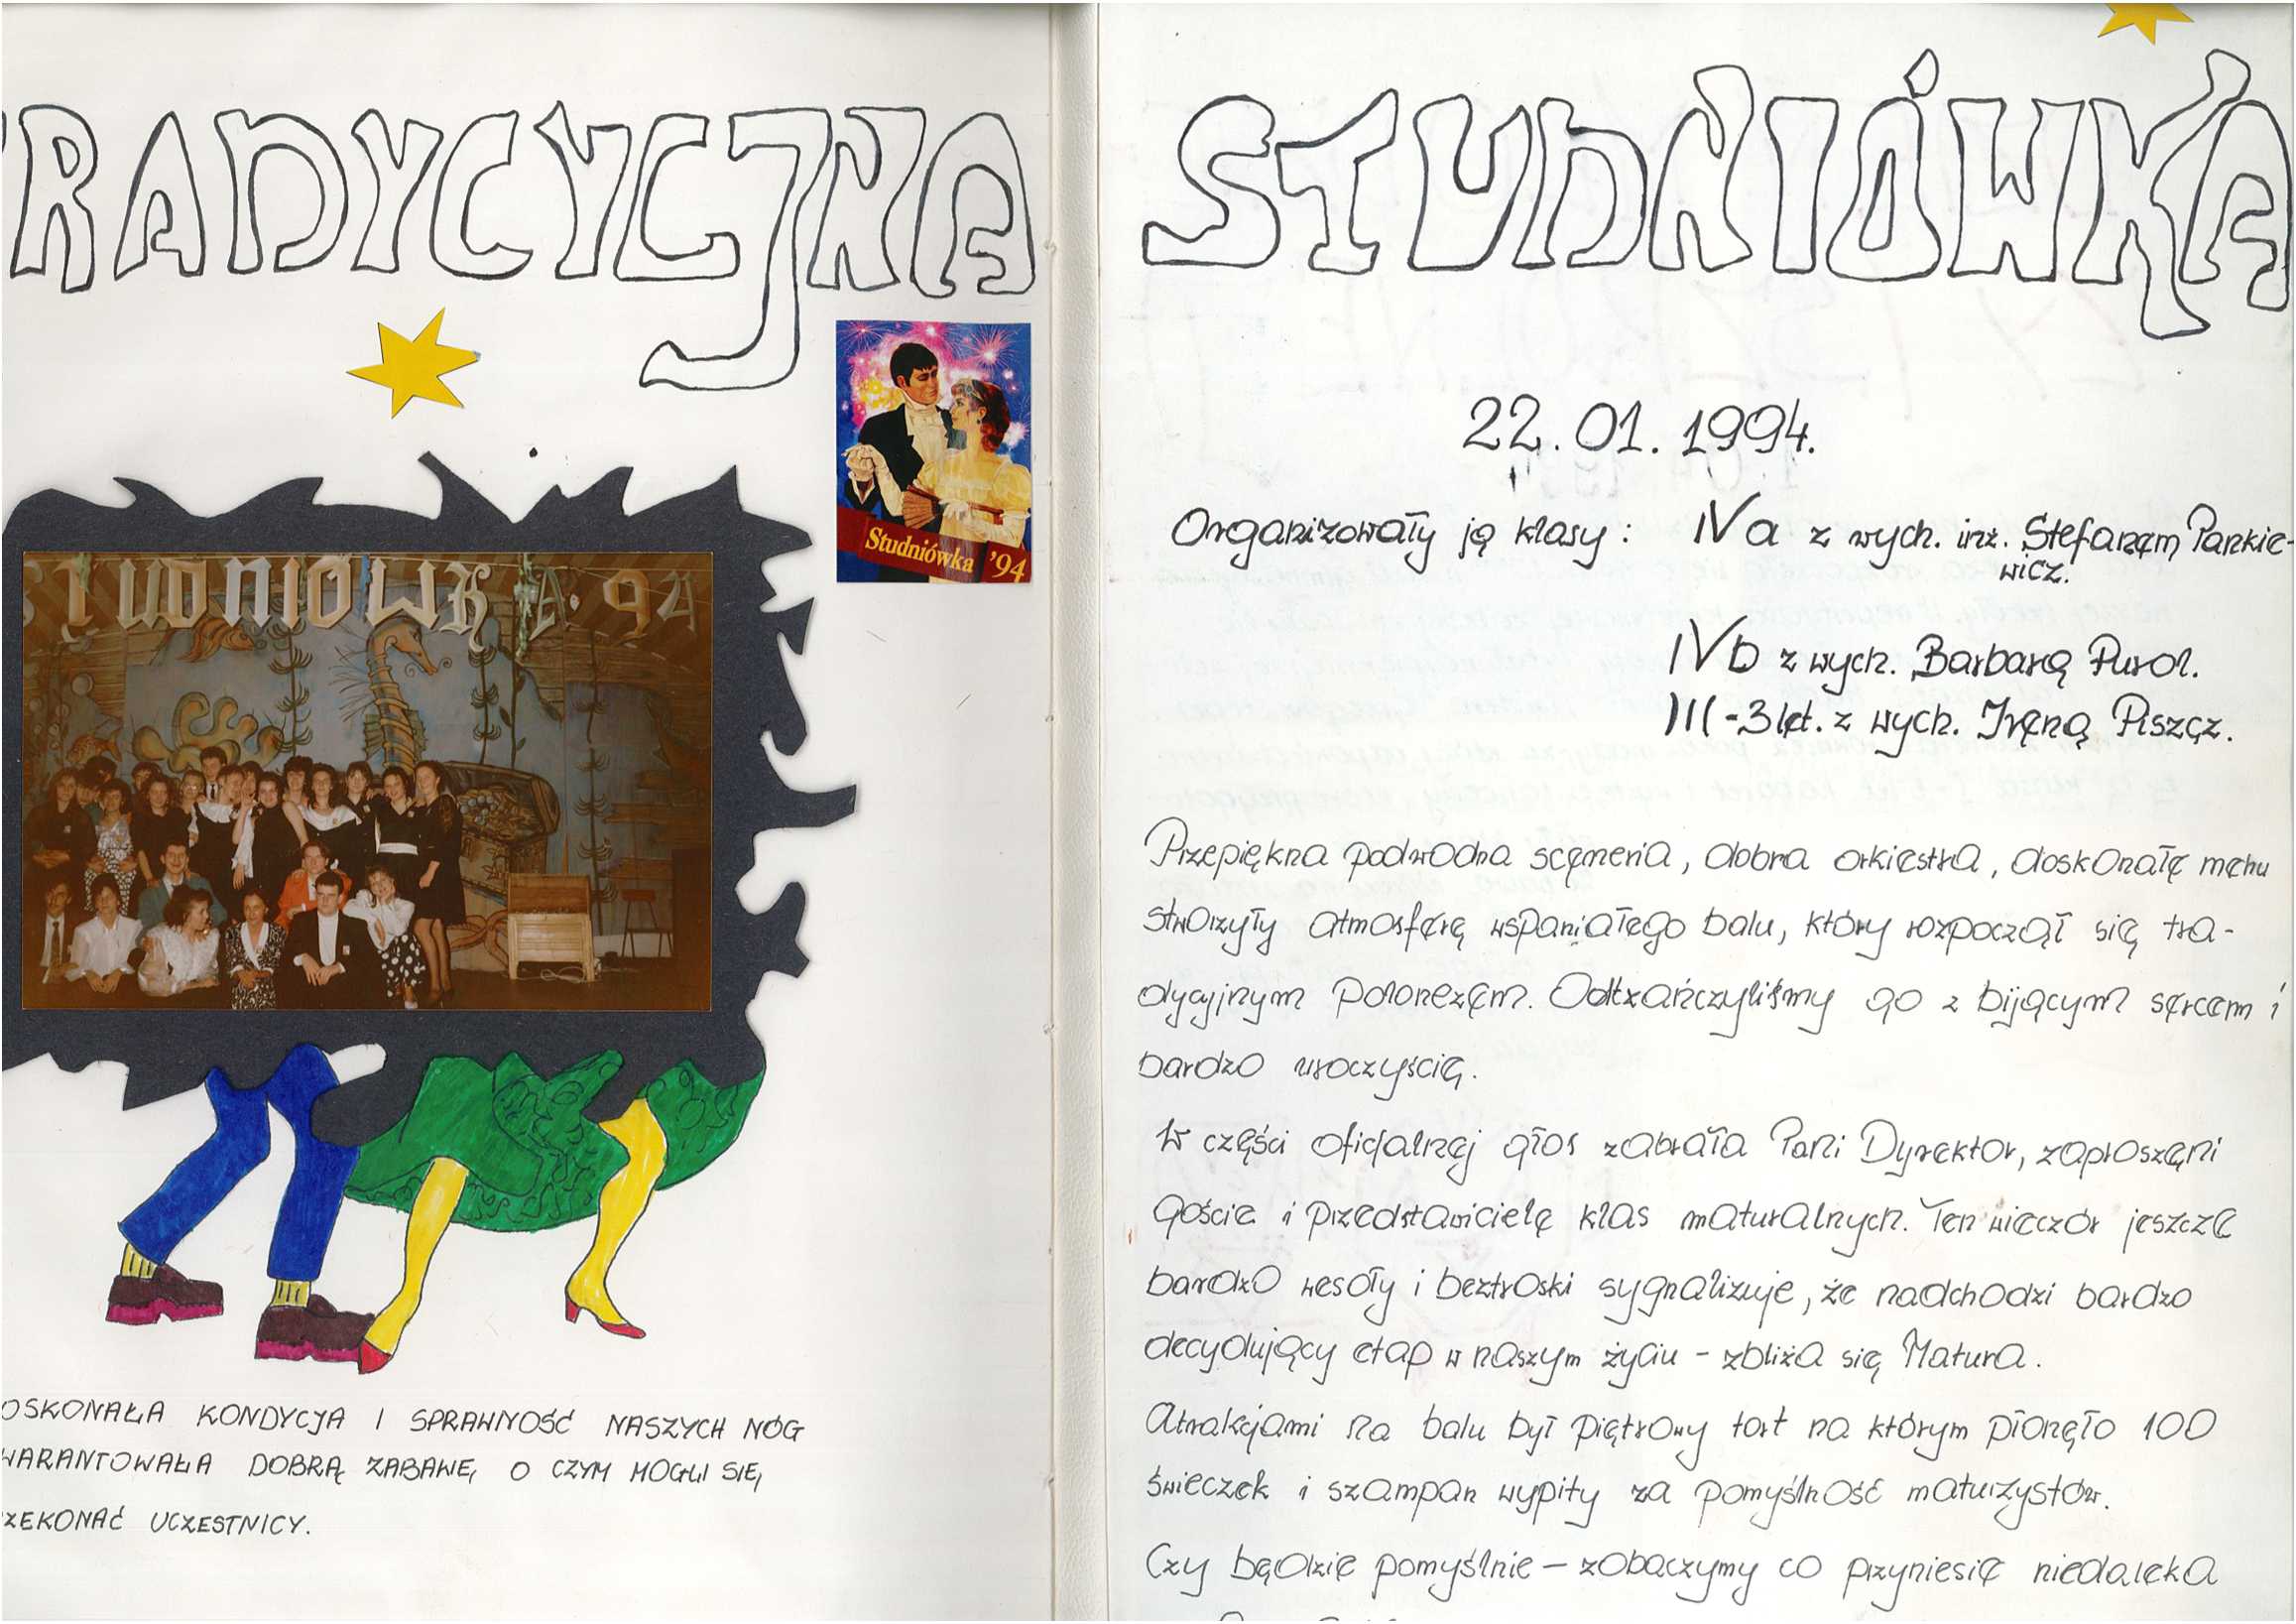 RADYCYJNA
Studniówka '94
STUDNIÓWKA 94
OSKONAŁA KONDYCJA I SPRAWNOŚĆ NASZYCH NÓG
WARANTOWAŁA DOBRĄ ZABAWĘ, O CZYM MOGLI SIĘ
ZEKONAĆ UCZESTNICY.
STUDNIÓWKA
22.01.1994.
Organizowały ją klasy: IVa z wych. inż. Stefanem Pankie-
wicz.
IVb z wych. Barbarą Purol.
III-3let. z wych. Ireną Piszcz.
Przepiękna podwodna sceneria, dobra orkiestra, doskonałe menu
stworzyły atmosferę wspaniałego balu, który rozpoczął się tra-
dycyjnym polonezem. Odtańczyliśmy go z bijącym sercem i
bardzo uroczyście.
W części oficjalnej głos zabrała Pani Dyrektor, zaproszeni
Goście i przedstawiciele klas maturalnych. Ten wieczór jeszcze
bardzo wesoły i beztroski sygnalizuje, że nadchodzi bardzo
decydujący etap w naszym życiu - zbliża się Matura.
Atrakcjami na balu był piętrowy tort na którym płonęło 100
świeczek i szampan wypity za pomyślność maturzystów.
Czy będzie pomyślnie - zobaczymy co przyniesie niedaleka